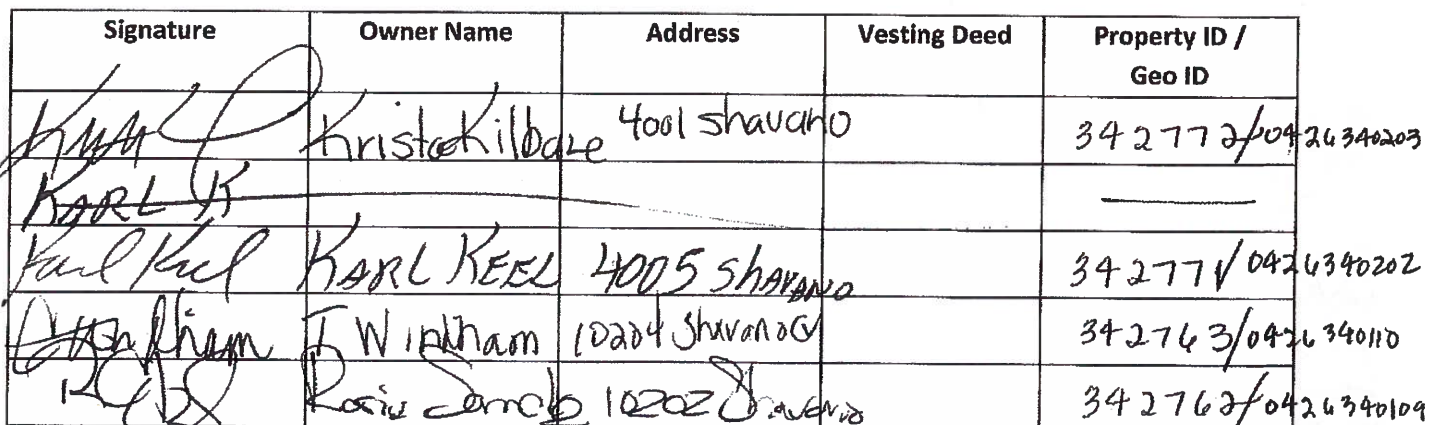 Signature Owner Name Address Vesting Deed Property ID /
Geo ID
Krista Kilbane 4001 Shavano 342772/0426340203
KARL K
Karl Keel KARL KEEL 4005 Shavano 342771/0426340202
T Windham 10204 Shavano 342763/0426340110
10202 Shavano 342762/0426340109